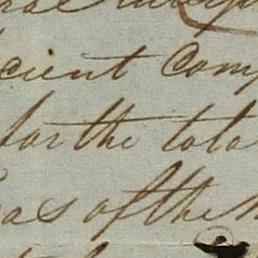 cient Comp
for the tota
as of the